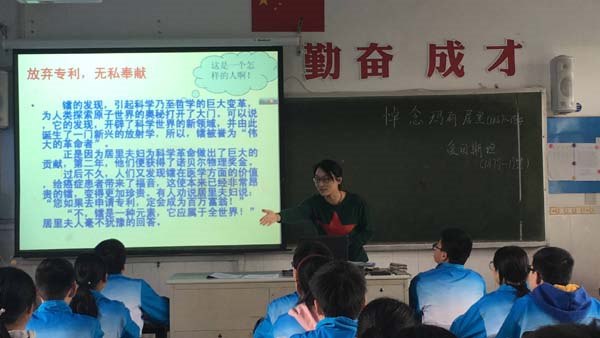 勤奋成才
放弃专利，无私奉献
这是一个怎
样的人啊！
镭的发现，引起科学乃至哲学的巨大变革，
为人类探索原子世界的奥秘打开了大门，可以说
，它的发现，开辟了科学世界的新领域，并由此
诞生了一门新兴的放射学，所以，镭被誉为“伟
大的革命者”。
正是因为居里夫妇为科学革命做出了巨大的
贡献，第二年，他们便获得了诺贝尔物理奖金。
过后不久，人们又发现镭在医学方面的价值
，给癌症患者带来了福音，这使本来已经非常昂
贵的镭，变得更加珍贵。有人劝说居里夫妇说：
“您如果去申请专利，定会成为百万富翁！”
“不，镭是一种元素，它应属于全世界！”
居里夫人毫不犹豫的回答。
悼念玛丽·居里
爱因斯坦